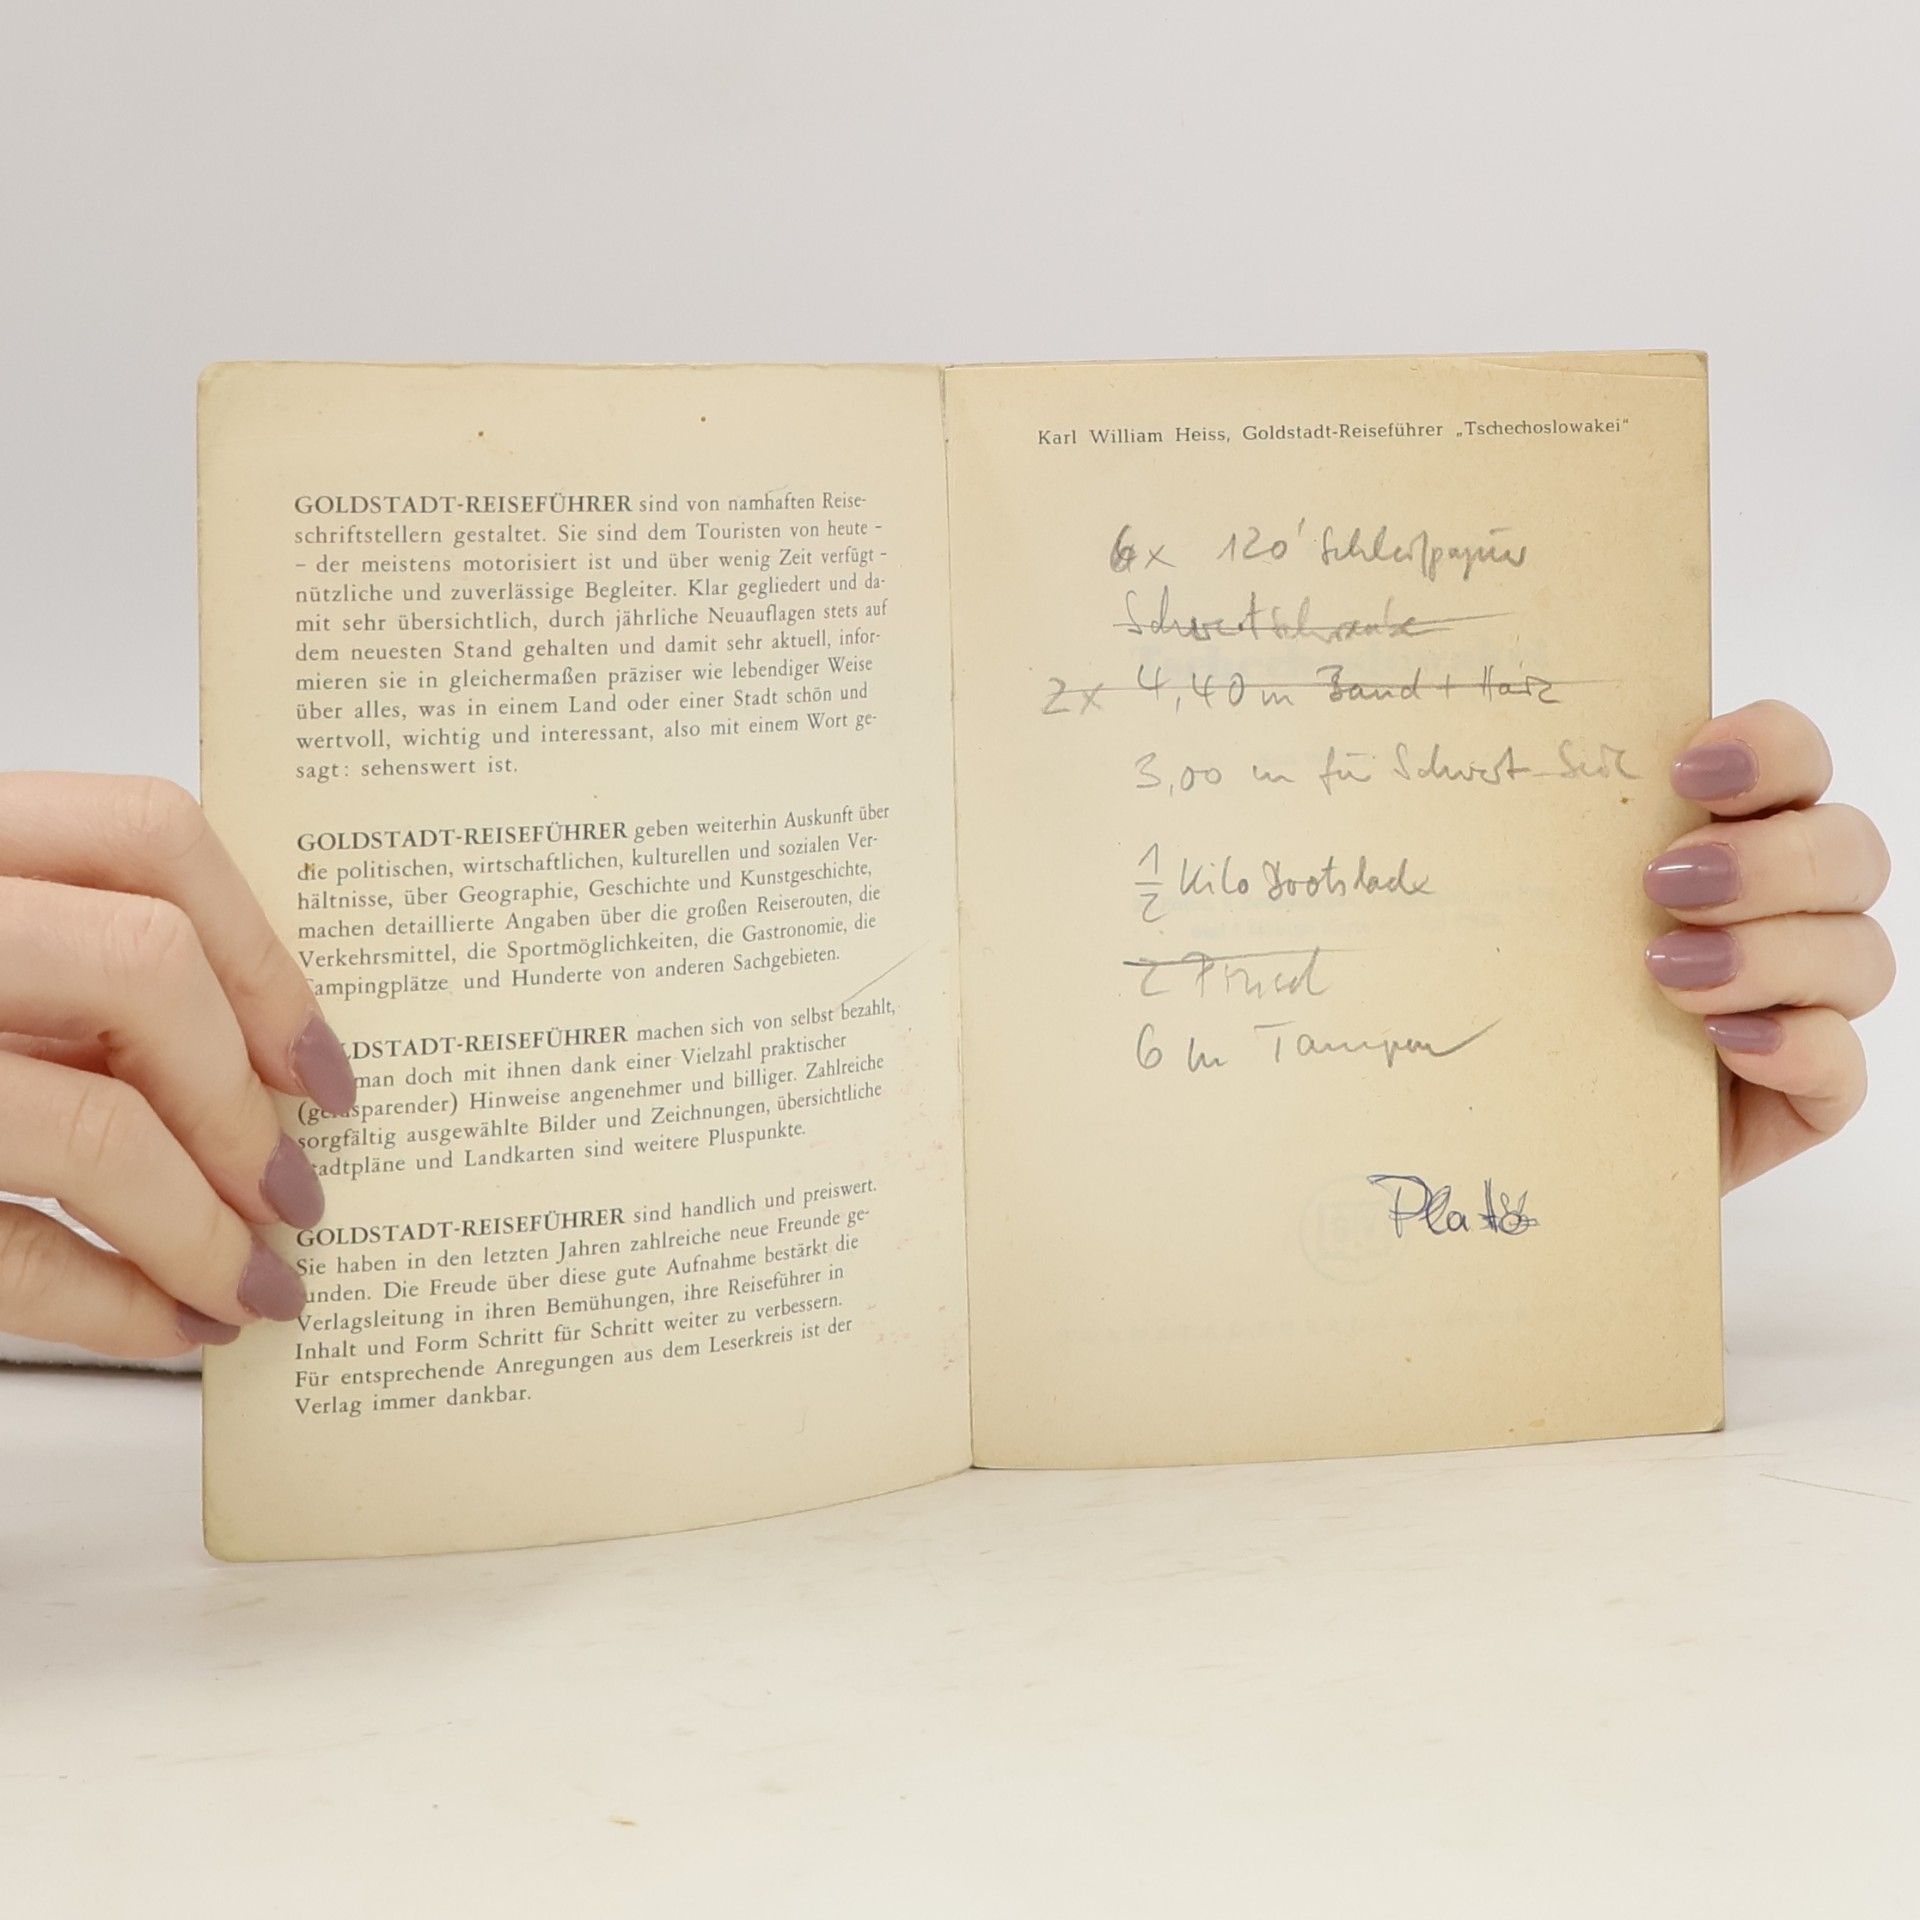 GOLDSTADT-REISEFÜHRER sind von namhaften Reise-
schriftstellern gestaltet. Sie sind dem Touristen von heute -
- der meistens motorisiert ist und über wenig Zeit verfügt -
nützliche und zuverlässige Begleiter. Klar gegliedert und da-
mit sehr übersichtlich, durch jährliche Neuauflagen stets auf
dem neuesten Stand gehalten und damit sehr aktuell, infor-
mieren sie in gleichermaßen präziser wie lebendiger Weise
über alles, was in einem Land oder einer Stadt schön und
wertvoll, wichtig und interessant, also mit einem Wort ge-
sagt: sehenswert ist.
GOLDSTADT-REISEFÜHRER geben weiterhin Auskunft über
die politischen, wirtschaftlichen, kulturellen und sozialen Ver-
hältnisse, über Geographie, Geschichte und Kunstgeschichte,
machen detaillierte Angaben über die großen Reiserouten, die
Verkehrsmittel, die Sportmöglichkeiten, die Gastronomie, die
Campingplätze und Hunderte von anderen Sachgebieten.
LDSTADT-REISEFÜHRER machen sich von selbst bezahlt,
man doch mit ihnen dank einer Vielzahl praktischer
(geldsparender) Hinweise angenehmer und billiger. Zahlreiche
sorgfältig ausgewählte Bilder und Zeichnungen, übersichtliche
tadtpläne und Landkarten sind weitere Pluspunkte.
GOLDSTADT-REISEFÜHRER sind handlich und preiswert.
Sie haben in den letzten Jahren zahlreiche neue Freunde ge-
unden. Die Freude über diese gute Aufnahme bestärkt die
Verlagsleitung in ihren Bemühungen, ihre Reiseführer in
Inhalt und Form Schritt für Schritt weiter zu verbessern.
Für entsprechende Anregungen aus dem Leserkreis ist der
Verlag immer dankbar.
Karl William Heiss, Goldstadt-Reiseführer „Tschechoslowakei"
6x 120' Schleifpapier
Schwertschraube
2x 4,40 m Band + Harz
3,00 m für Schwert-Seil
1/2 Kilo Bootslack
2 Pinsel
6 m Tampen